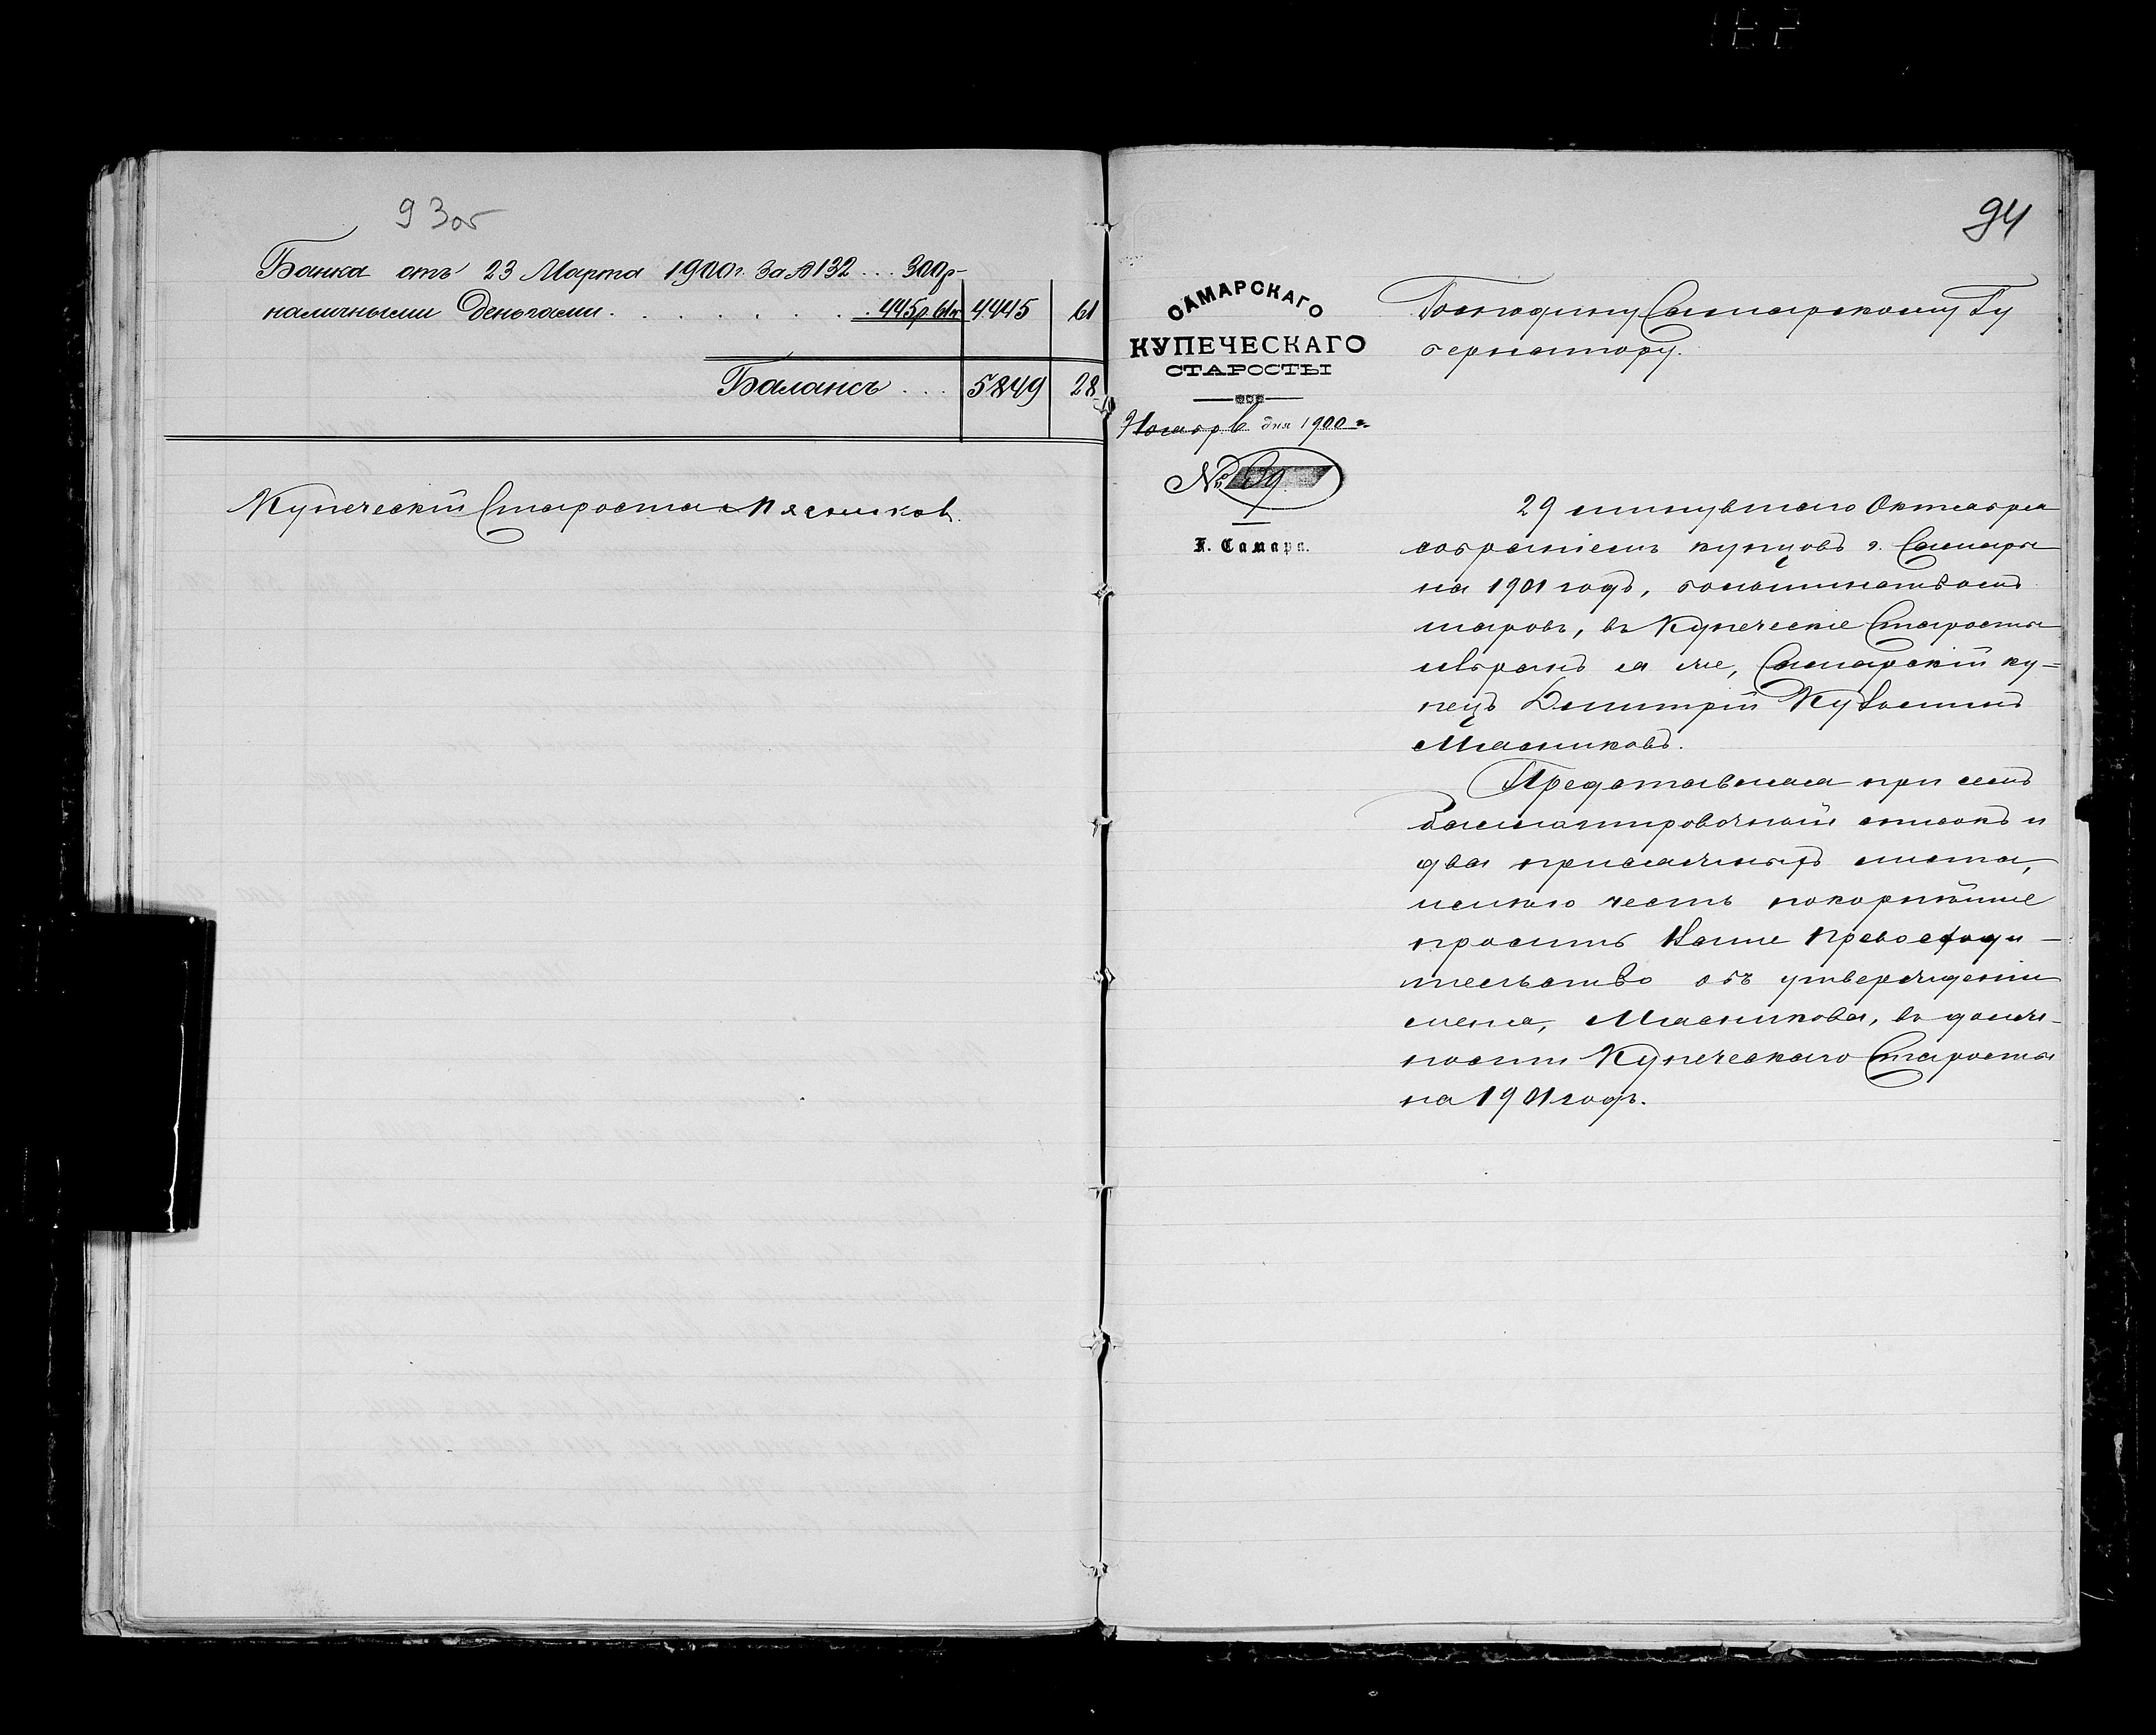 93об
Банка отъ 23 Марта 1900г. за № 132 ... 300р-
наличными Деньгами . . . . . . . 445р 61к 4445 61
Балансъ . . . 5849 28
Купеческій Староста Мясников.
94
САМАРСКАГО
КУПЕЧЕСКАГО
СТАРОСТЫ
Ноября 6 дня 1900 г.
№ 59
Г. Самара.
Господину Самарскому Гу
бернатору.
29 минувшаго Октября
собраніемъ купцовъ г. Самары
на 1901 годъ, большинствомъ
шаровъ, въ Купеческіе Старосты
избранъ я же, Самарскій ку-
пецъ Дмитрій Кузьмичъ
Мясниковъ.
Представляя при семъ
баллотировочный списокъ и
два присяжныхъ листа,
имѣю честь покорнѣйше
просить Ваше Превосходи-
тельство объ утвержденіи
меня, Мясникова, въ долж-
ности Купеческаго Старосты
на 1901 годъ.